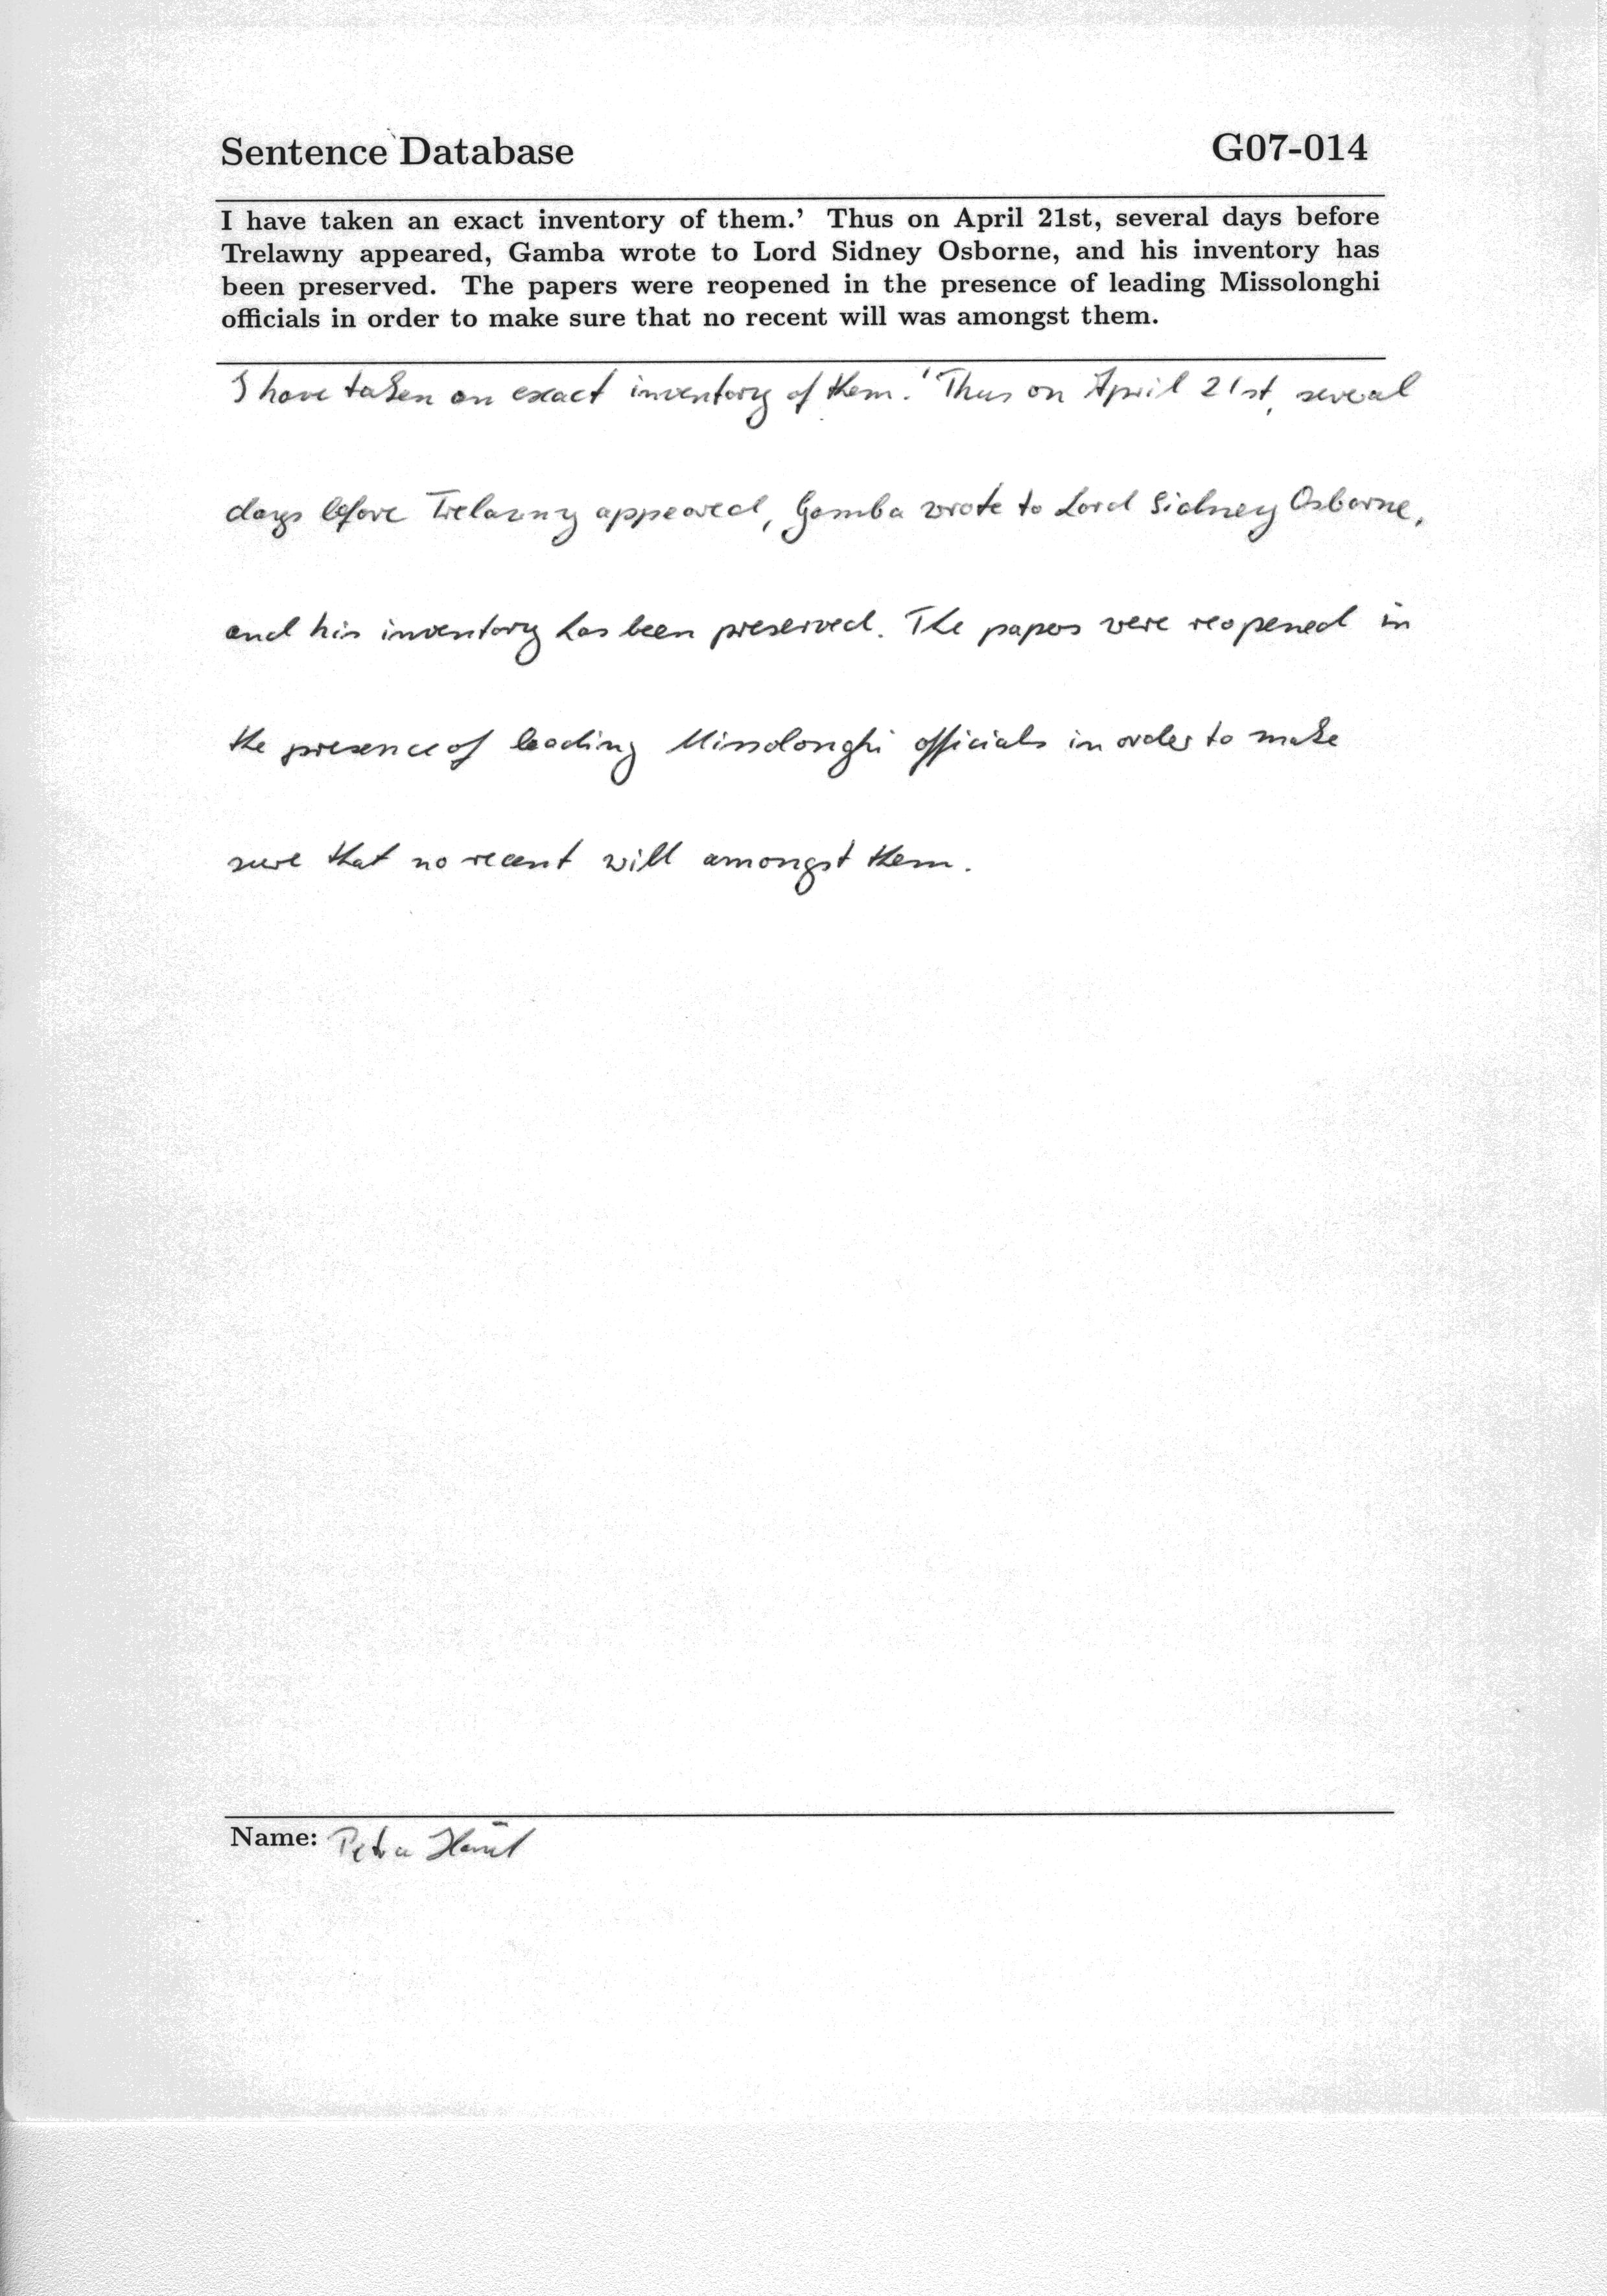 Sentence Database G07-014
I have taken an exact inventory of them.' Thus on April 21st, several days before
Trelawny appeared, Gamba wrote to Lord Sidney Osborne, and his inventory has
been preserved. The papers were reopened in the presence of leading Missolonghi
officials in order to make sure that no recent will was amongst them.
I have taken an exact inventory of them.' Thus on April 21st, several
days before Trelawny appeared, Gamba wrote to Lord Sidney Osborne,
and his inventory has been preserved. The papers were reopened in
the presence of leading Missolonghi officials in order to make
sure that no recent will amongst them.
Name: Petra